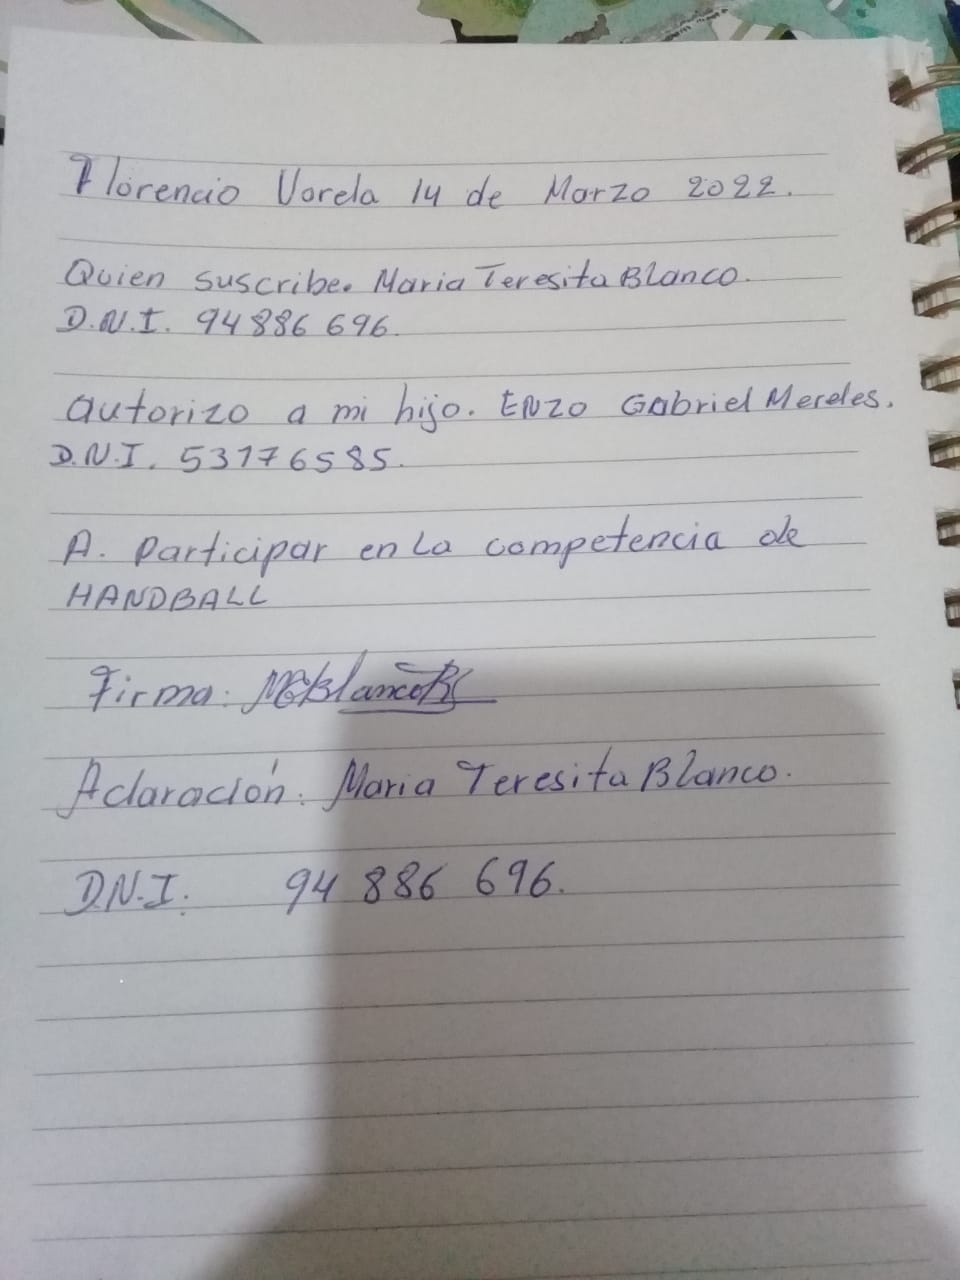 Florencio Varela 14 de Marzo 2022.
Quien suscribe. Maria Teresita Blanco.
D.N.I. 94886 696.
autorizo a mi hijo. ENZO Gabriel Mereles.
D.N.I. 53176585.
A. participar en La competencia de
HANDBALL
Firma: MBlanco
Aclaración: Maria Teresita Blanco.
D.N.I: 94 886 696.